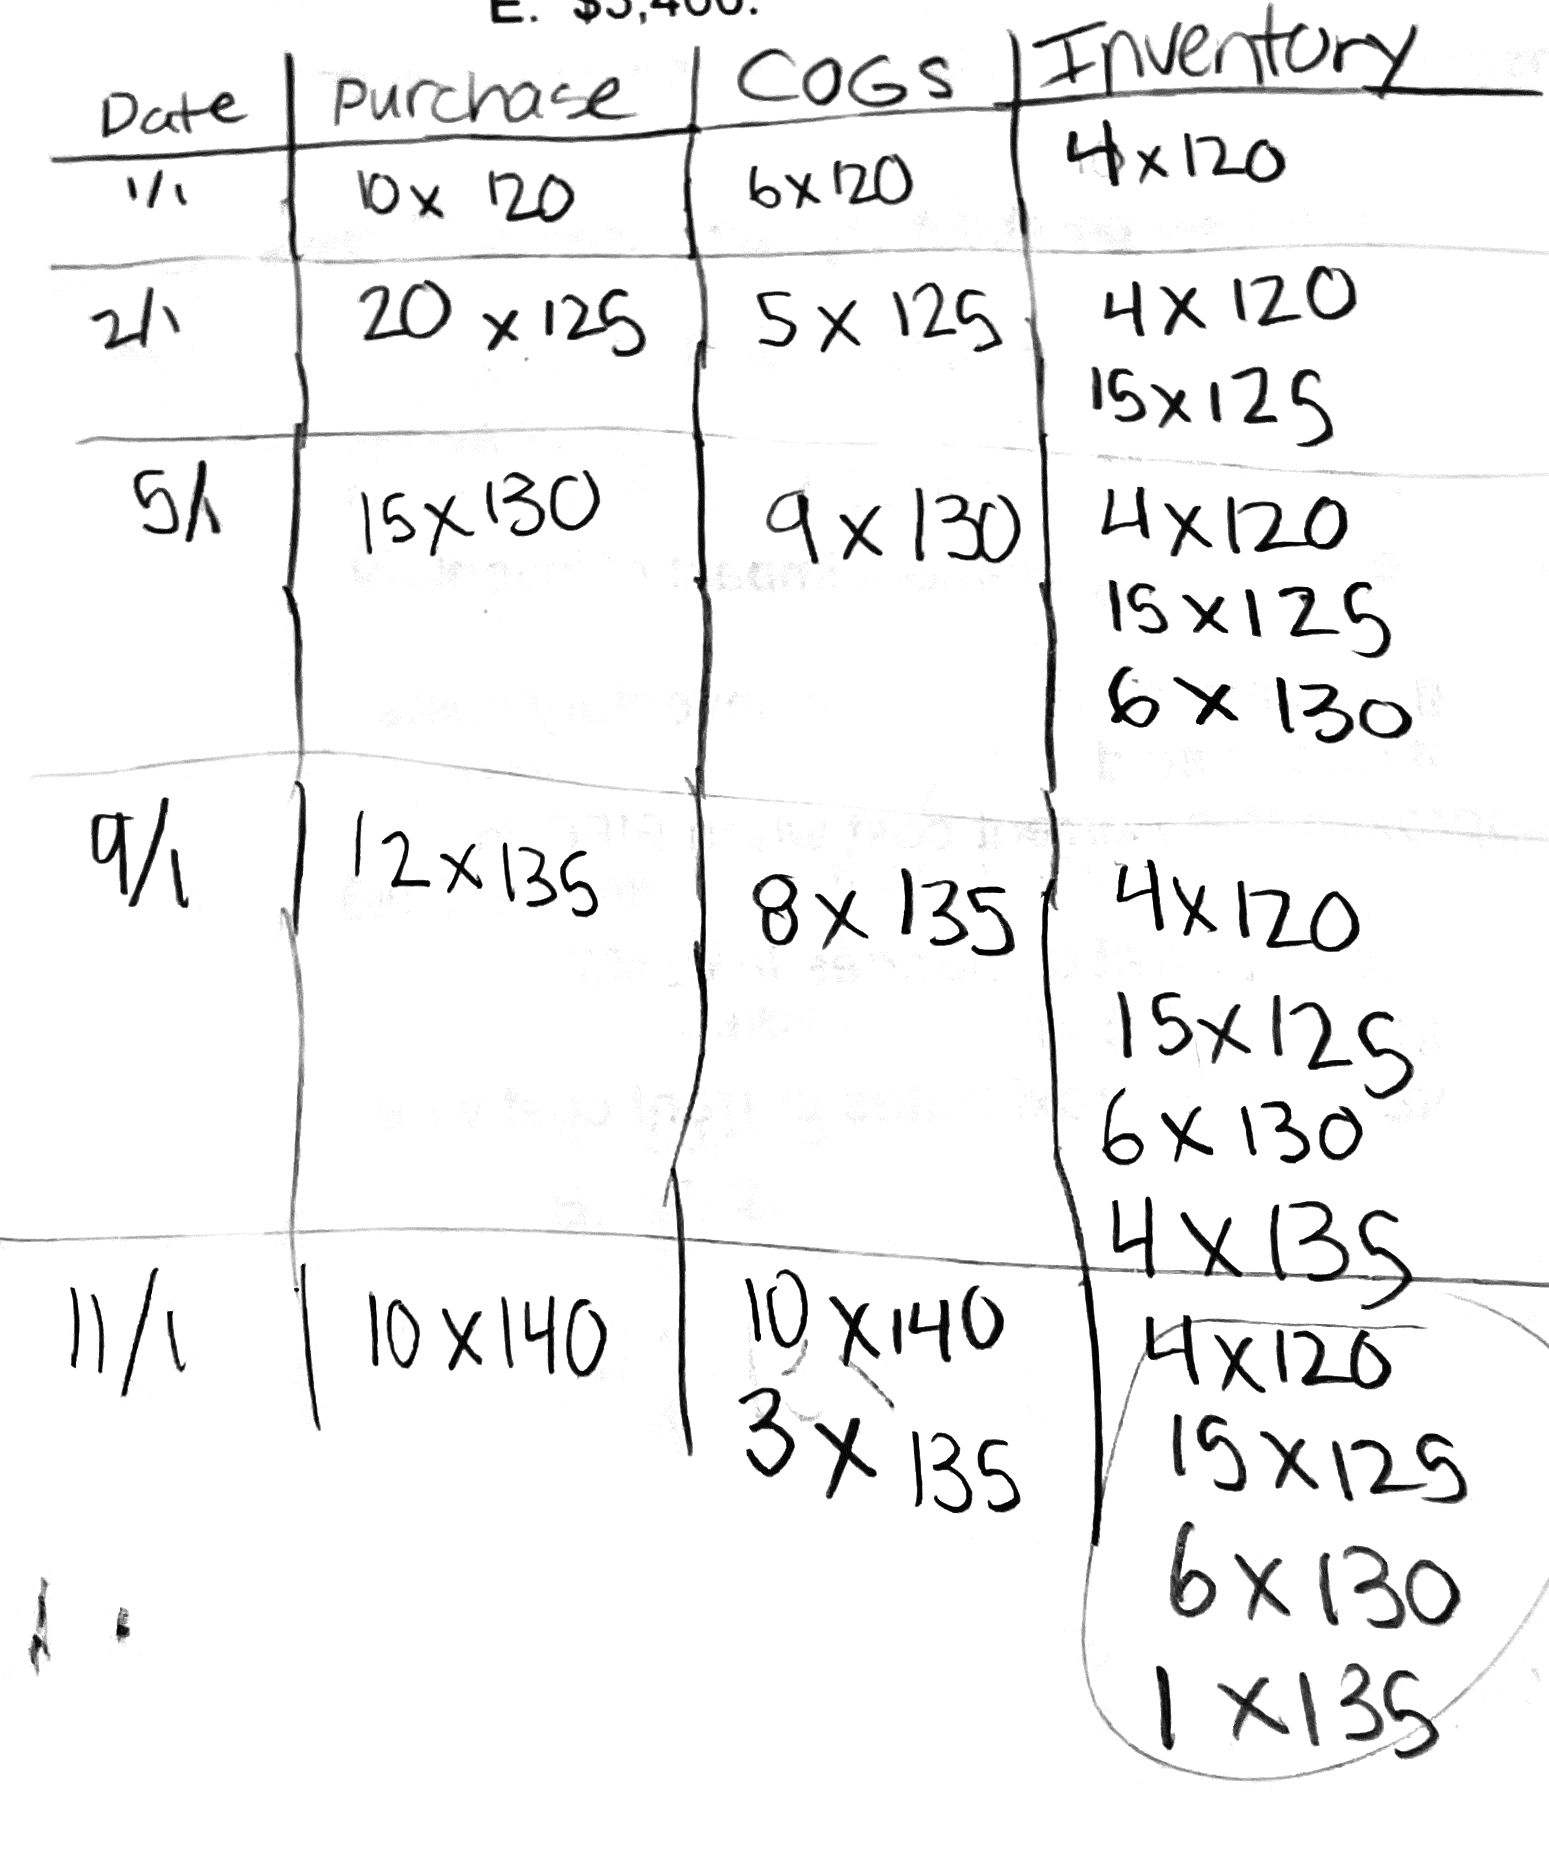 E. $3,400.
Date Purchase COGS Inventory
1/1 10 x 120 6 x 120 4 x 120
2/1 20 x 125 5 x 125 4 x 120
15 x 125
5/1 15 x 130 9 x 130 4 x 120
15 x 125
6 x 130
9/1 12 x 135 8 x 135 4 x 120
15 x 125
6 x 130
4 x 135
11/1 10 x 140 10 x 140 4 x 120
3 x 135 15 x 125
6 x 130
1 x 135